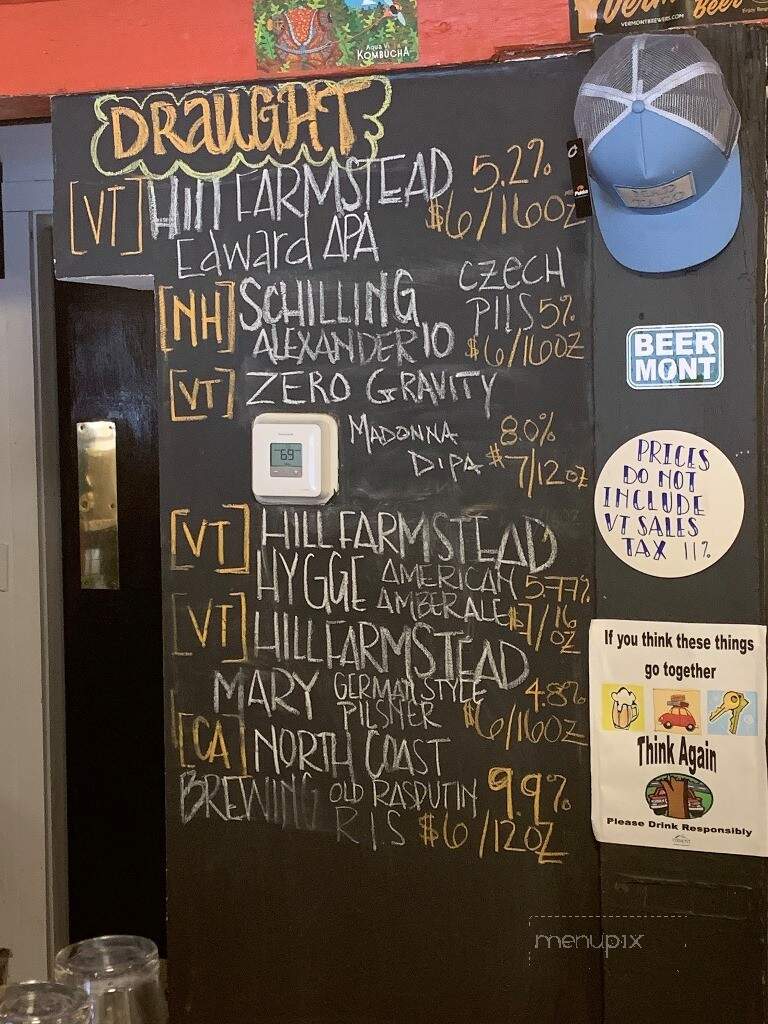 Aqua ViTea
KOMBUCHA
Vermont Beer
VERMONTBREWERS.COM
DRAUGHT
[VT] HILL FARMSTEAD 5.2%
Edward APA $6/16OZ
[NH] SCHILLING CZECH
ALEXANDER 10 PILS 5%
$6/16OZ
[VT] ZERO GRAVITY
MADONNA 8.0%
DIPA $7/12OZ
69
[VT] HILL FARMSTEAD
HYGGE AMERICAN 5.77%
AMBER ALE $7/16
OZ
[VT] HILL FARMSTEAD
MARY GERMAN STYLE 4.8%
PILSNER $6/16OZ
[CA] NORTH COAST
BREWING OLD RASPUTIN 9.9%
R.I.S $6/12OZ
TACO
BEER
MONT
PRICES
DO NOT
INCLUDE
VT SALES
TAX 11%
If you think these things
go together
Think Again
Please Drink Responsibly
menupix